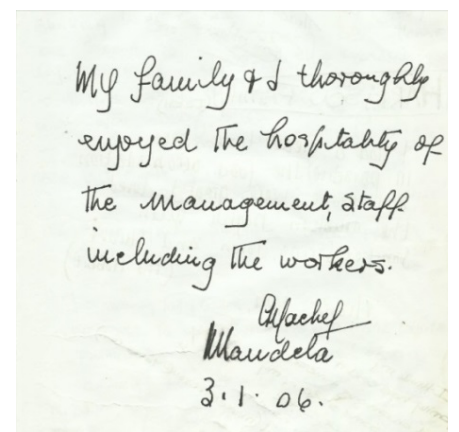 My family & I thoroughly
enjoyed the hospitality of
the management, staff
including the workers.
GMachel
Mandela
3.1.06.